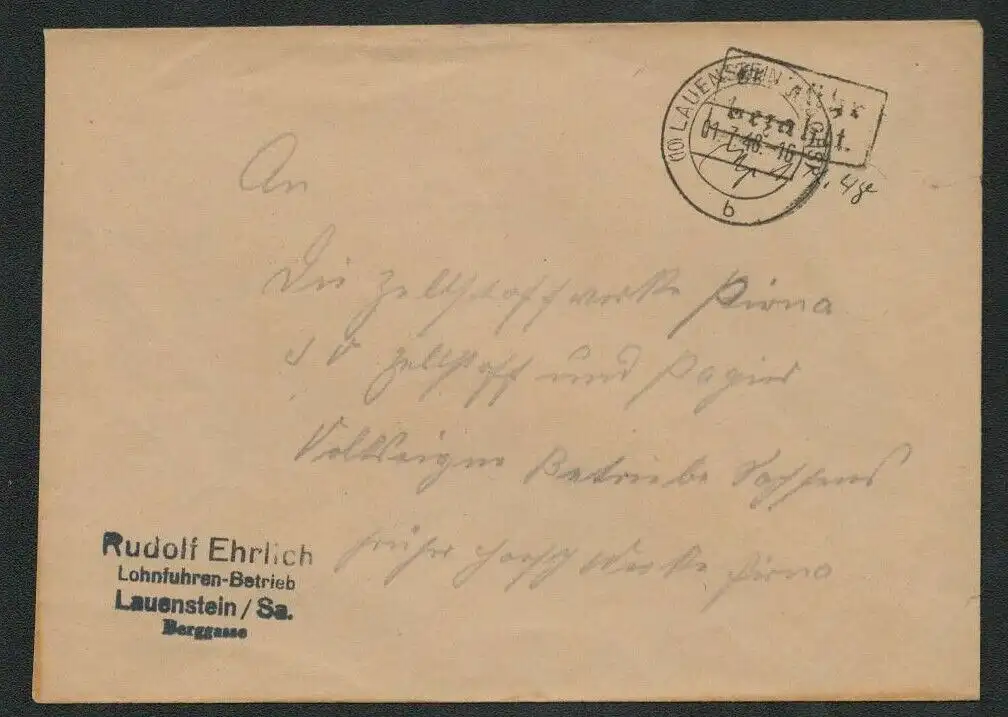 (10) LAUENSTEIN
01.7.48.-16
b
bezahlt.
An
Die Zellstoffwerke Pirna
Zellstoff und Papier
Volkseigene Betriebe Sachsens
früher Hoesch Werke Pirna
Rudolf Ehrlich
Lohnfuhren-Betrieb
Lauenstein / Sa.
Berggasse